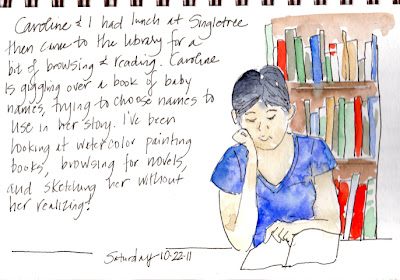 Caroline & I had lunch at Singletree
then came to the library for a
bit of browsing & reading. Caroline
is giggling over a book of baby
names, trying to choose names to
use in her story. I've been
looking at watercolor painting
books, browsing for novels,
and sketching her without
her realizing!
Saturday 10-22-11